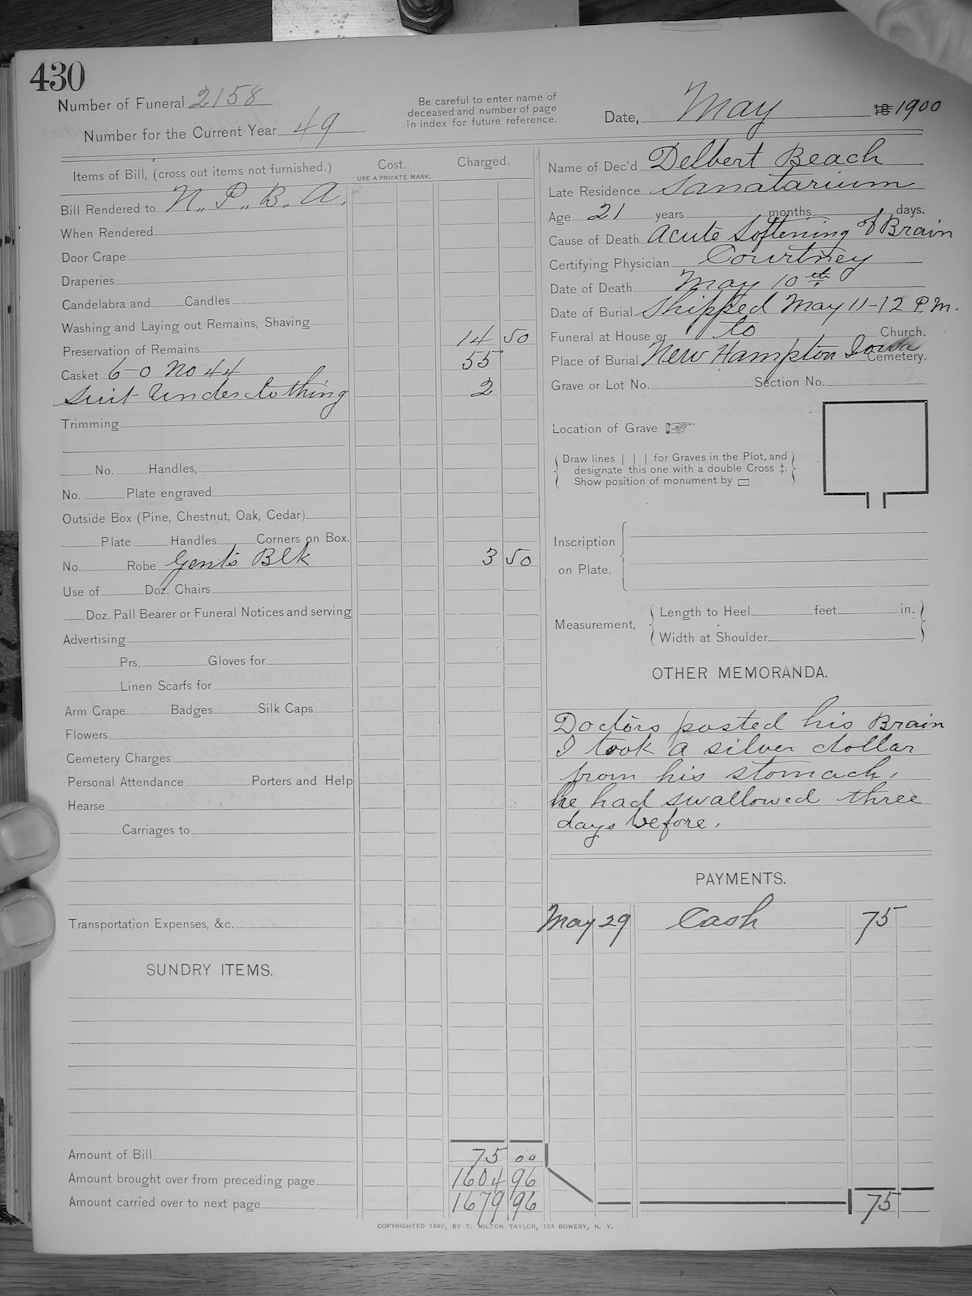 430
Number of Funeral 2158
Number for the Current Year 49
Be careful to enter name of
deceased and number of page
in index for future reference.
Date, May 18 1900
Items of Bill, (cross out items not furnished.) Cost. Charged.
USE A PRIVATE MARK.
Bill Rendered to N. P. B. A.
When Rendered
Door Crape
Draperies
Candelabra and Candles
Washing and Laying out Remains, Shaving
Preservation of Remains 14 50
Casket 6-0 No 44 55
Suit Underclothing 2
Trimming
No. Handles,
No. Plate engraved
Outside Box (Pine, Chestnut, Oak, Cedar)
Plate Handles Corners on Box.
No. Robe Gents Blk 3 50
Use of Doz. Chairs
Doz. Pall Bearer or Funeral Notices and serving
Advertising
Prs. Gloves for
Linen Scarfs for
Arm Crape Badges Silk Caps
Flowers
Cemetery Charges
Personal Attendance Porters and Help
Hearse
Carriages to
Transportation Expenses, &c.
SUNDRY ITEMS.
Amount of Bill 75 00
Amount brought over from preceding page 1604 96
Amount carried over to next page 1679 96
Name of Dec'd Delbert Beach
Late Residence Sanatarium
Age 21 years months days.
Cause of Death Acute Softening of Brain
Certifying Physician Courtney
Date of Death May 10th
Date of Burial Shipped May 11-12 P.M.
Funeral at House or to Church.
Place of Burial New Hampton Iowa Cemetery.
Grave or Lot No. Section No.
Location of Grave ☞
Draw lines | | | for Graves in the Plot, and
designate this one with a double Cross ‡.
Show position of monument by ▭
Inscription
on Plate.
Measurement, Length to Heel feet in.
Width at Shoulder
OTHER MEMORANDA.
Doctors posted his Brain
I took a silver dollar
from his stomach,
he had swallowed three
days before.
PAYMENTS.
May 29 Cash 75
75
COPYRIGHTED 1890, BY T. MILTON TAYLOR, 163 BOWERY, N. Y.